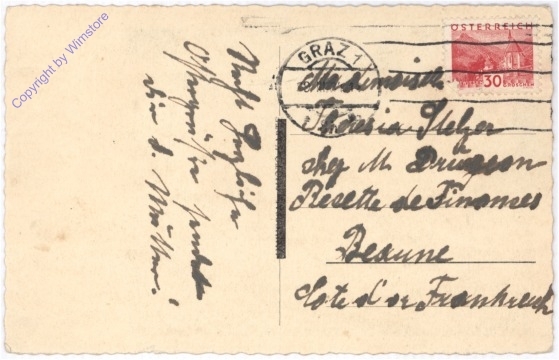 Copyright by Wimstore
Recht herzliche
Ostergrüße sendet
dir d. Mutter!
GRAZ 1
ÖSTERREICH
30 GROSCHEN
Mademoiselle
Theresia Stelzer
chez M. Drugeon
Resette de Finances
Beaune
Cote d'or Frankreich